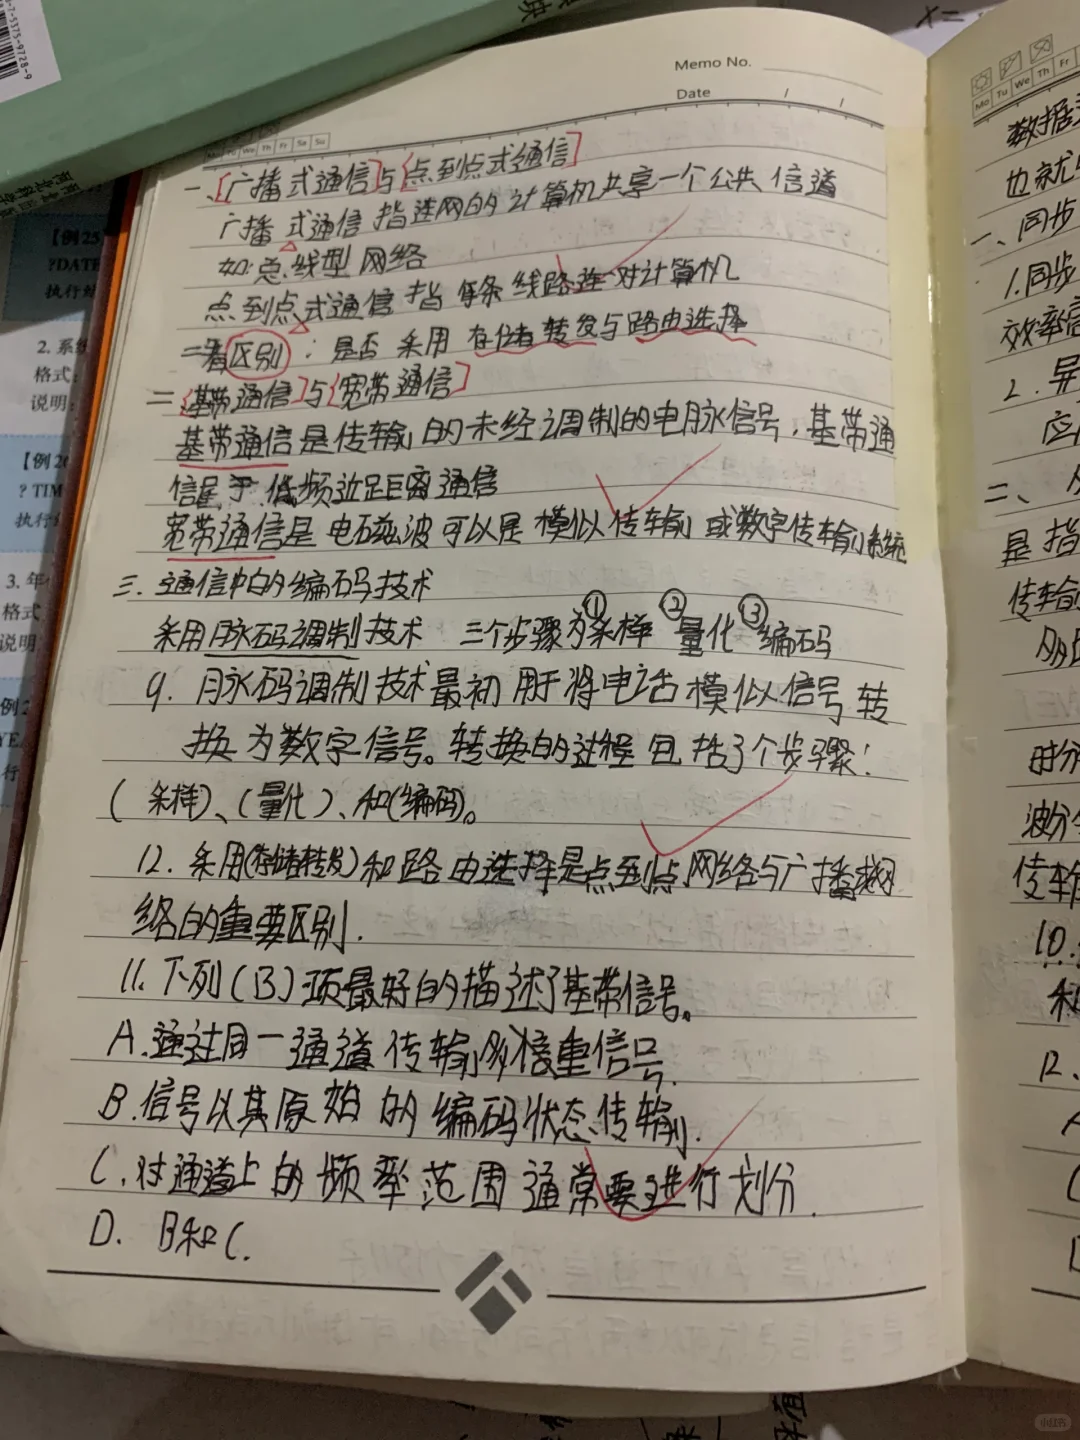 Memo No.
Date / /
Mo Tu We Th Fr Sa Su
一、[广播式通信]与[点到点式通信]
广播式通信指连网的计算机共享一个公共信道
如:总线型网络
点到点式通信指每条线路连一对计算机
二者区别:是否采用存储转发与路由选择
二[基带通信]与[宽带通信]
基带通信是传输的未经调制的电脉信号,基带通
信是于低频近距离通信
宽带通信是电磁波可以是模似传输或数字传输系统
三.通信中的编码技术
采用脉码调制技术 三个步骤为①采样②量化③编码
9.脉码调制技术最初用于将电话模似信号转
换为数字信号。转换的过程包括了个步骤:
(采样)、(量化)、和(编码)。
12.采用(存储转发)和路由选择是点到点网络与广播式网
络的重要区别.
11.下列(B)项最好的描述了基带信号。
A.通过同一通道传输多信重信号.
B.信号以其原始的编码状态传输.
C.对通道上的频率范围通常要进行划分.
D. B和C.
7-5375-9728-9
【例25
?DATE
执行结
2. 系统
格式:
说明:
【例26
? TIM
执行
3. 年
格式
说明
例2
YE
行
X=
Mo Tu We Th Fr
数据
也就
一、同步
1.同步
效率高
2.异
应
二、
是指
传输
时分
波分
传输
10.
和
12.
A
C
D
小红书